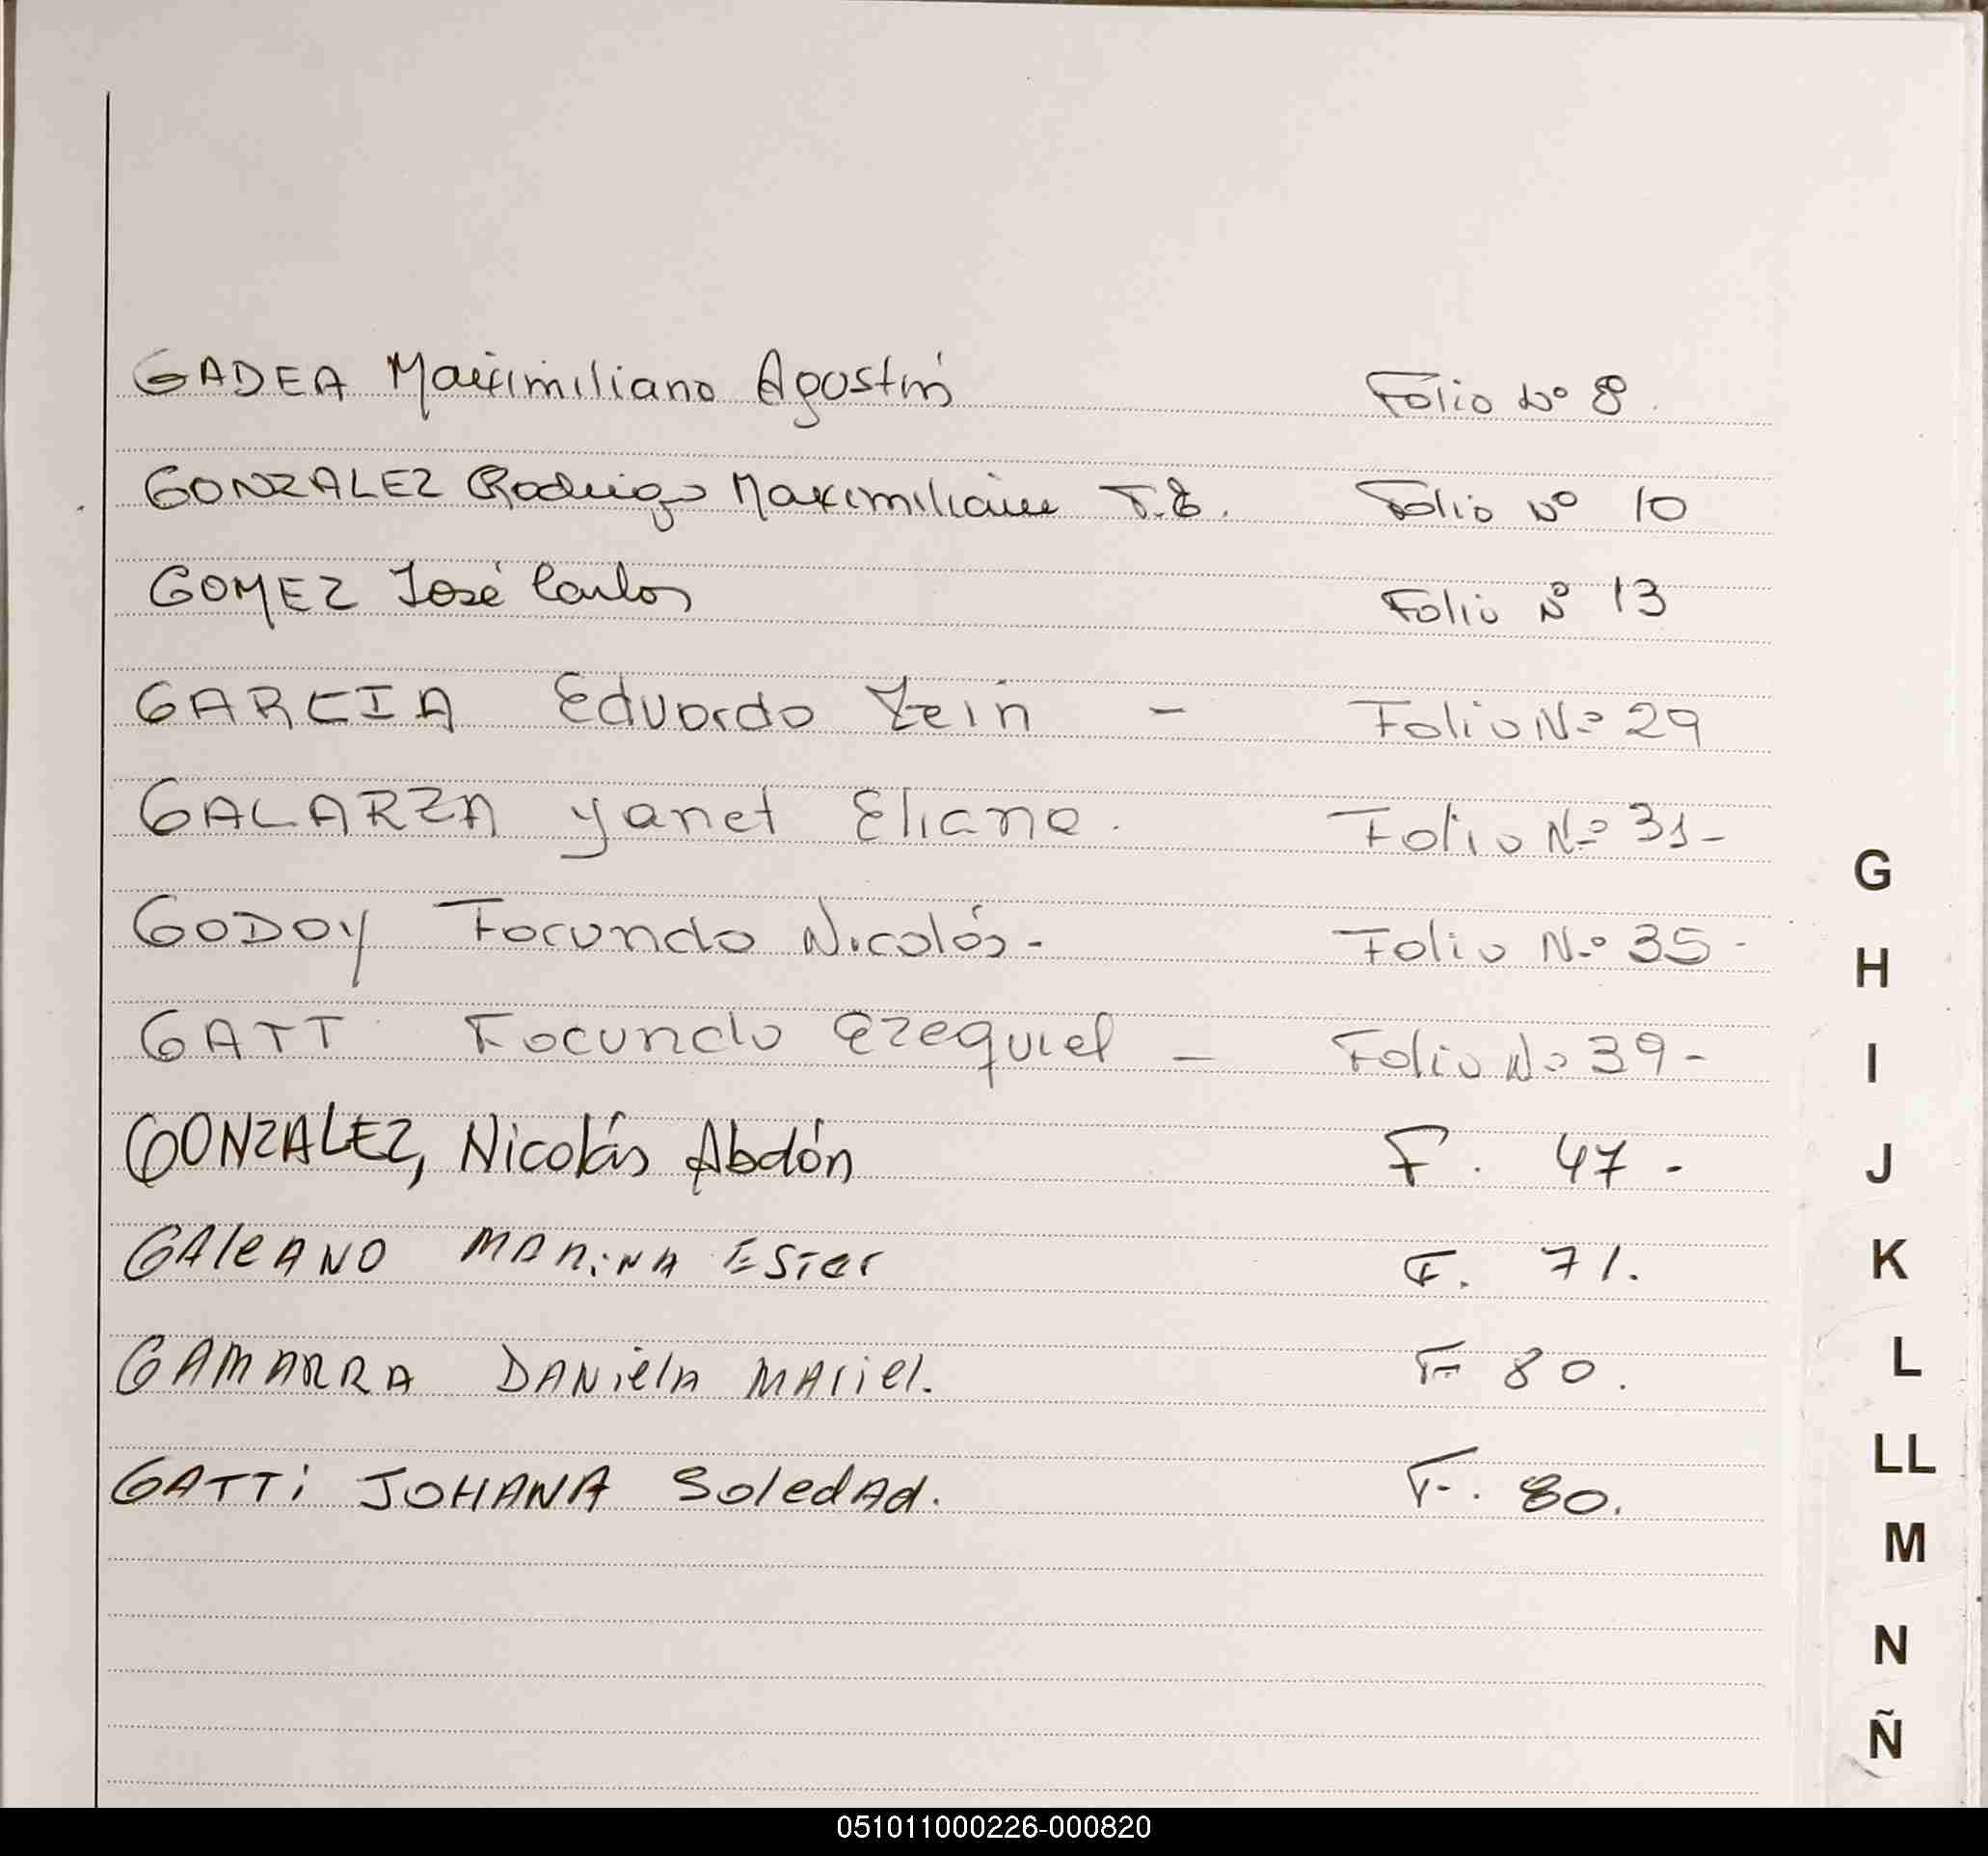 GADEA Maximiliano Agustín Folio Nº 8.
GONZALEZ Rodrigo Maximiliano T.E. Folio Nº 10
GOMEZ José Carlos Folio Nº 13
GARCIA Eduardo Zein - Folio Nº 29
GALARZA Yanet Eliana. Folio Nº 31-
GODOY Facundo Nicolás- Folio Nº 35-
GATT Facundo Ezequiel - Folio Nº 39-
GONZALEZ, Nicolás Abdón F. 47-
GAleANO MARiNA Ester F. 71.
GAMARRA DANielA MAriel. F 80.
GATTi JOHANA SoledAd. F. 80.
G
H
I
J
K
L
LL
M
N
Ñ
051011000226-000820